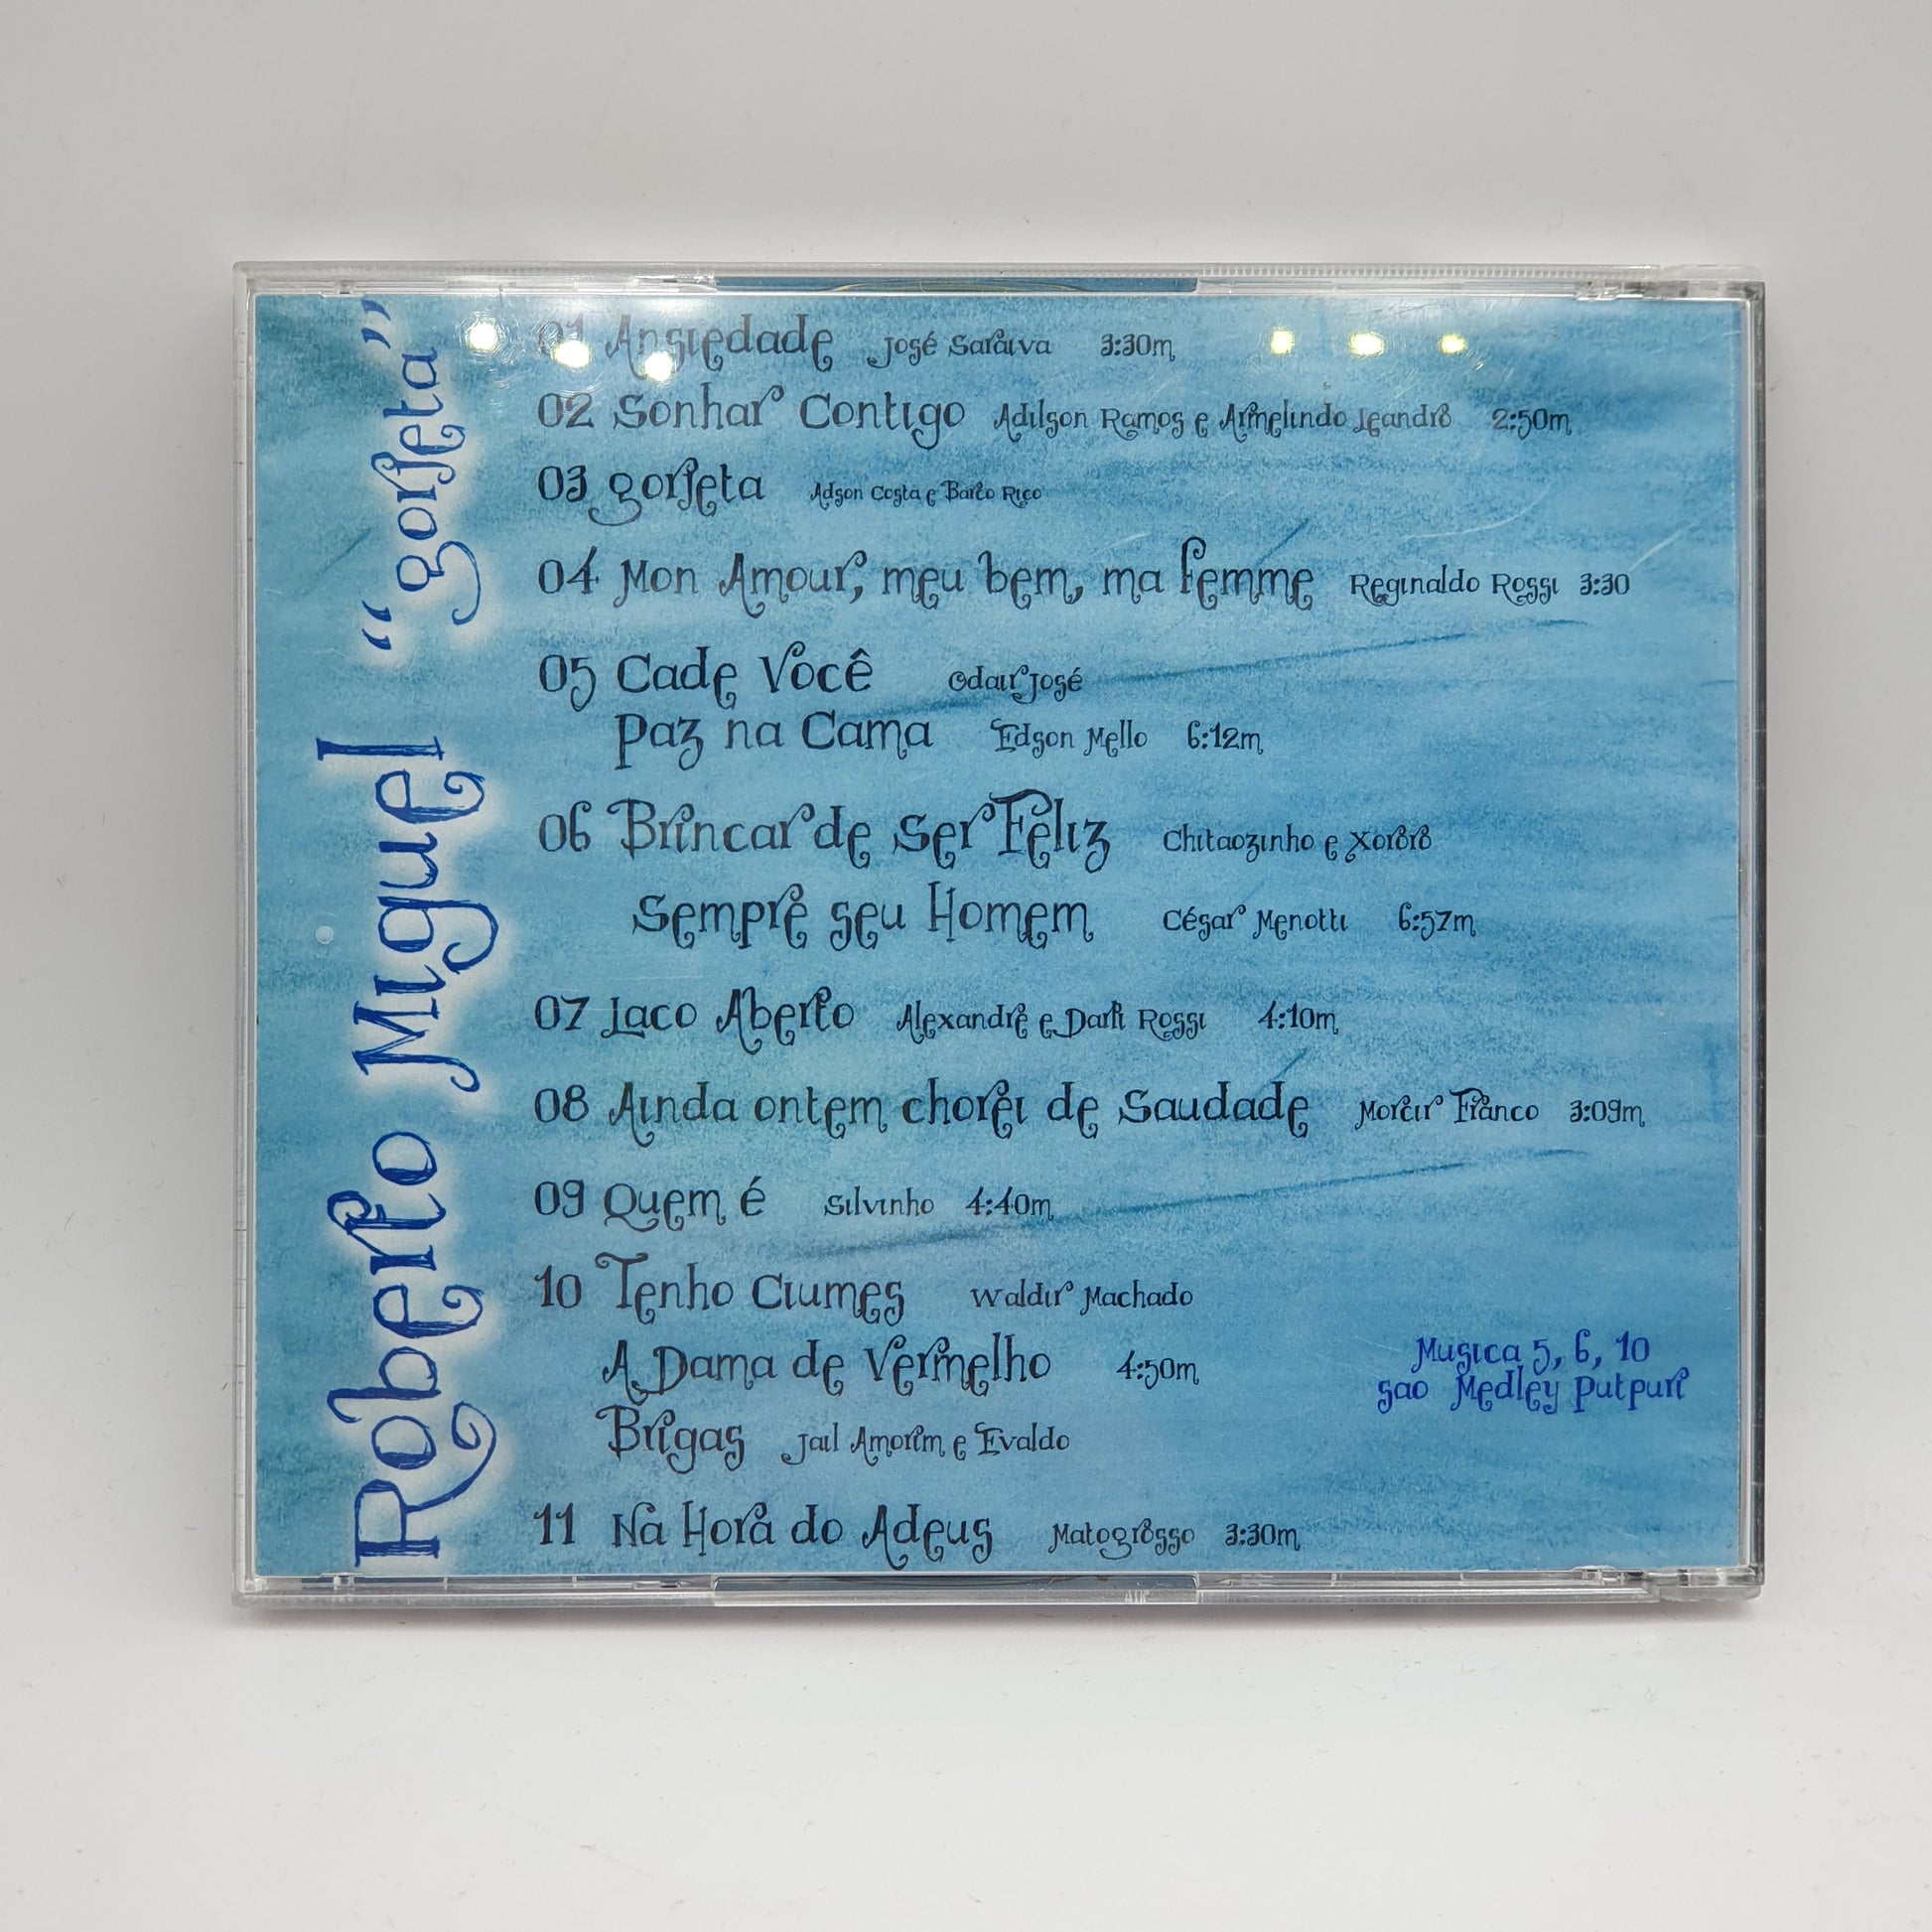 Roberto Miguel "gorjeta"
01 Ansiedade José Saraiva 3:30m
02 Sonhar Contigo Adilson Ramos e Armelindo Leandro 2:50m
03 gorjeta Adson Costa e Barto Rico
04 Mon Amour, meu bem, ma femme Reginaldo Rossi 3:30
05 Cade Você Odair José
Paz na Cama Edson Mello 6:12m
06 Brincar de Ser Feliz Chitaozinho e Xororo
Sempre seu Homem César Menotti 6:57m
07 Laco Aberto Alexandre e Darti Rossi 4:10m
08 Ainda ontem chorei de Saudade Moreir Franco 3:09m
09 Quem é Silvinho 4:40m
10 Tenho Ciumes Waldir Machado
A Dama de Vermelho 4:50m
Brigas Jail Amorim e Evaldo
11 Na Hora do Adeus Matogrosso 3:30m
Musica 5, 6, 10
sao Medley putpuri